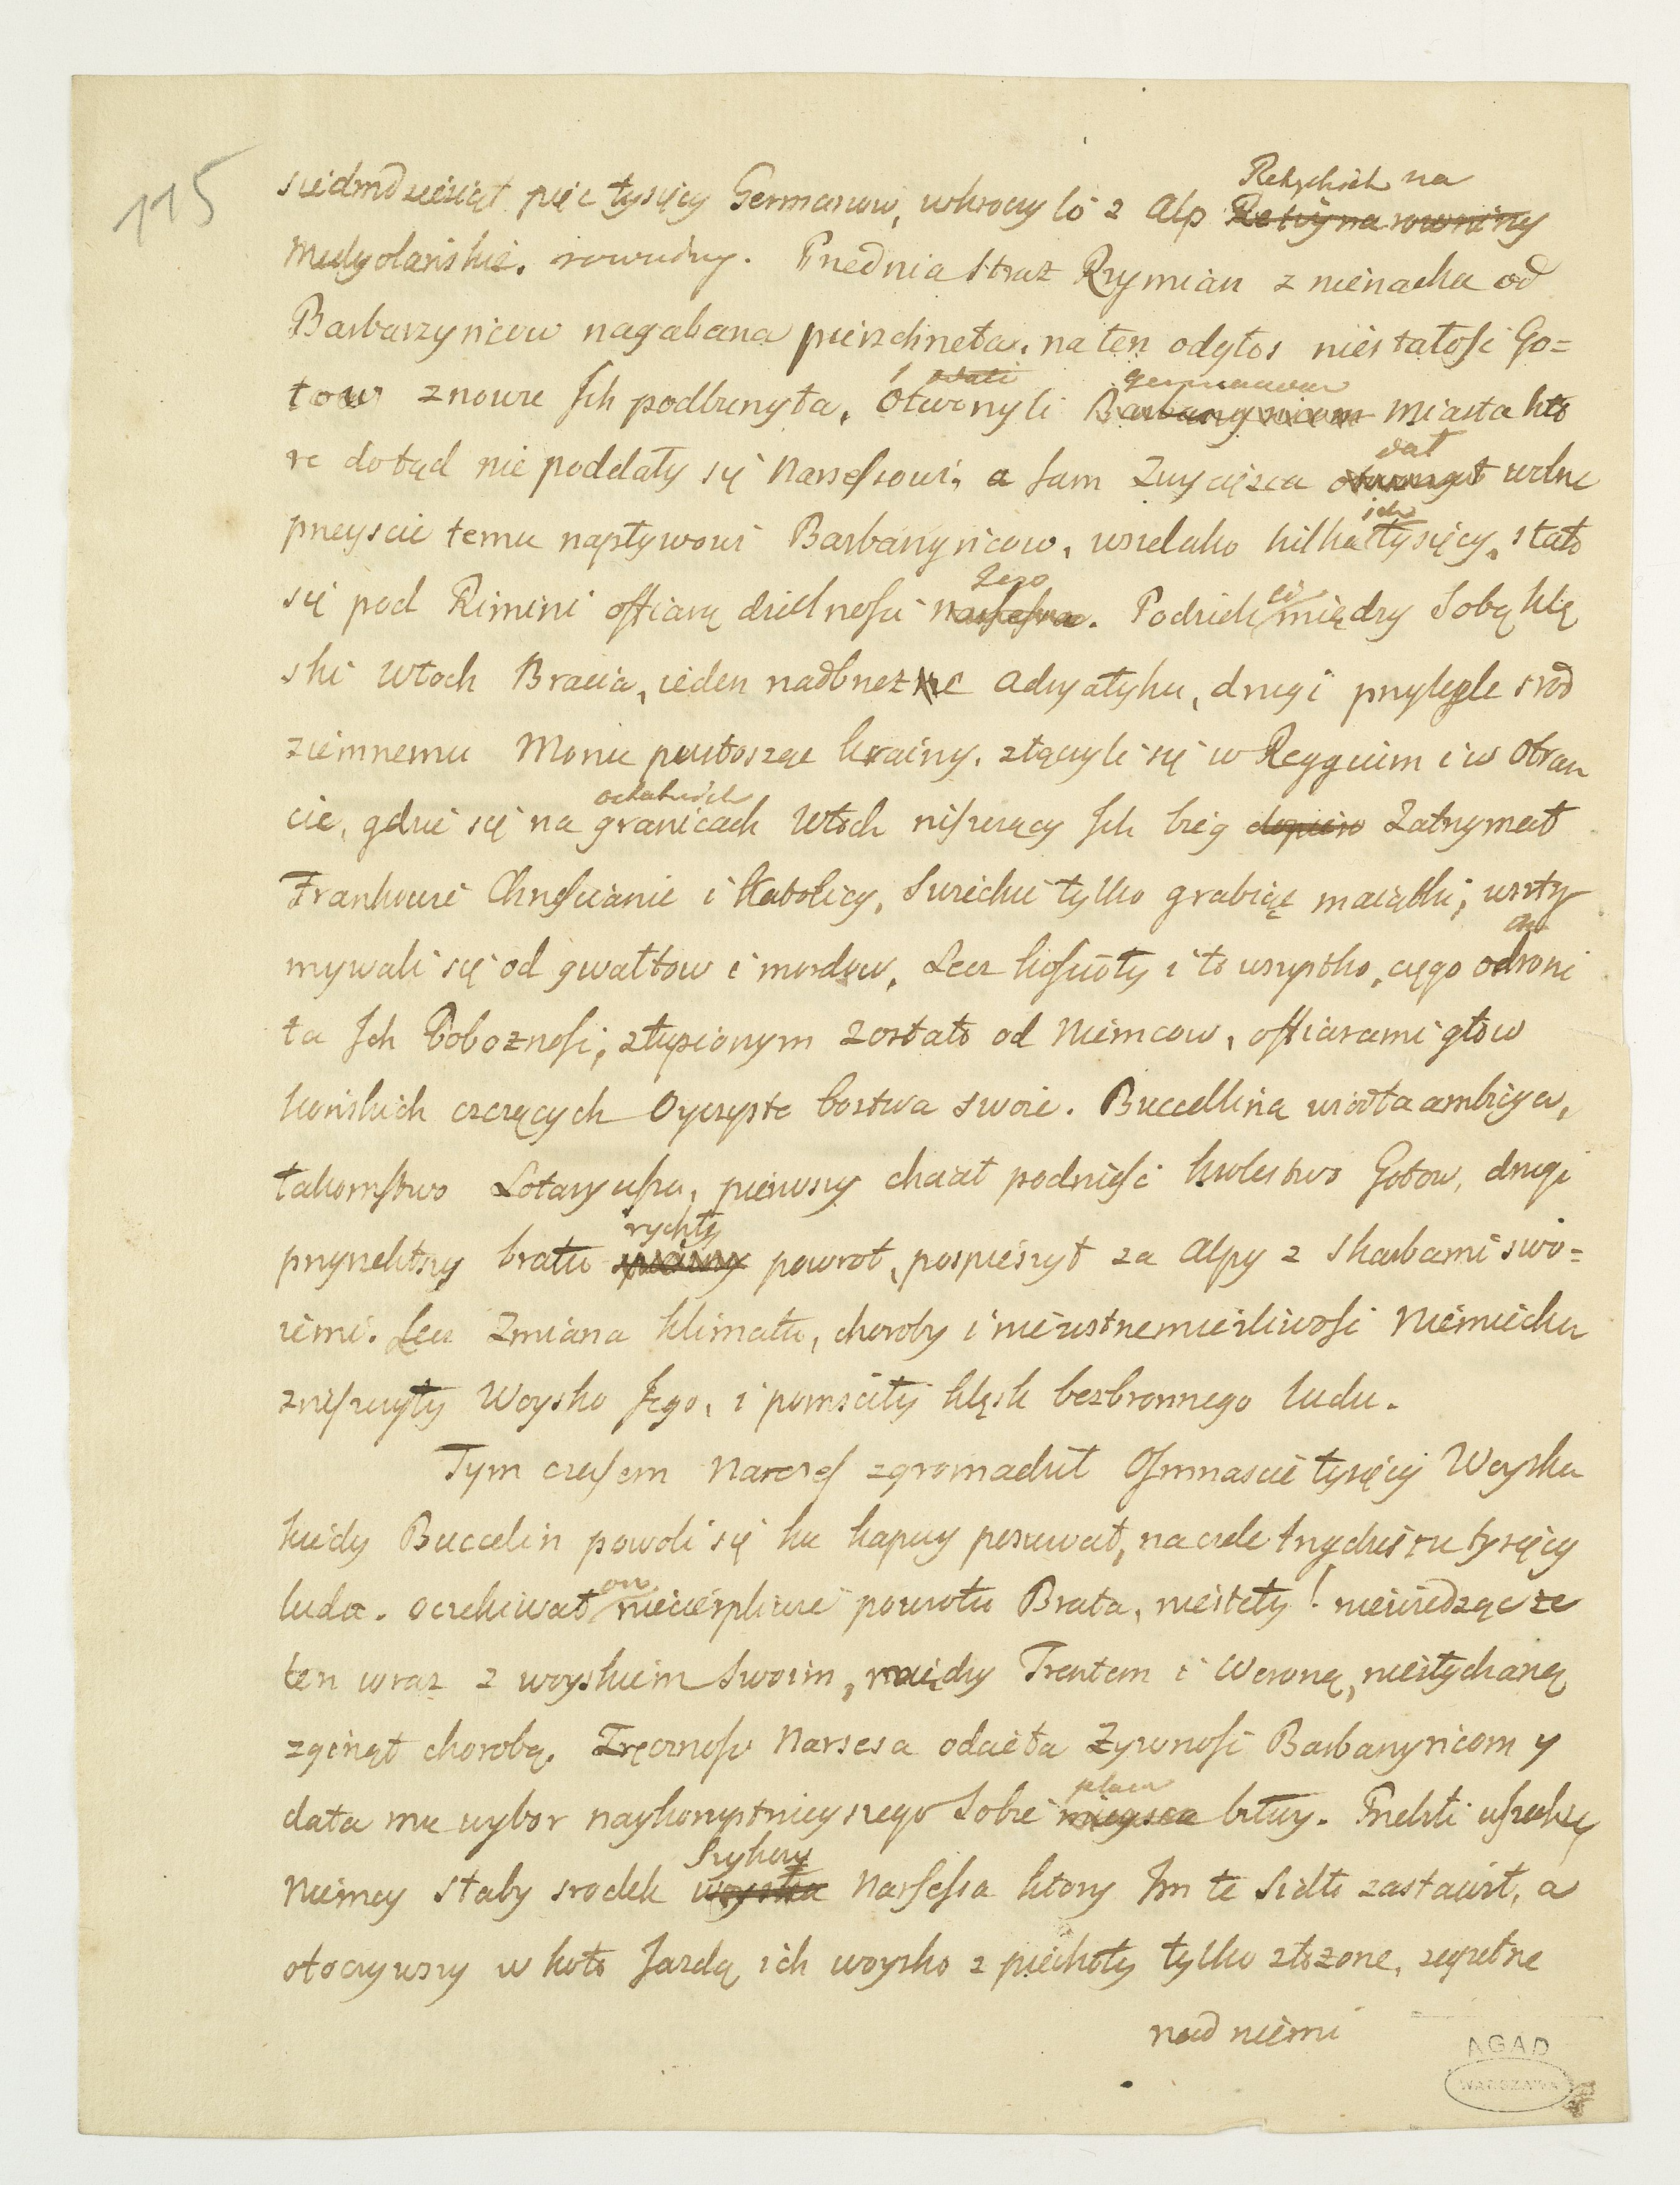 115
siedmdziesiąt pięc tysięcy Germanow, wkroczyło z Alp Retyckich na ~~Retij na rowniny~~
Medyolańskie. rowniny. Przednia straz Rzymian z nienacka od
Barbarzyńcow nagabana pierzchneła. na ten odgłos niestałość Go=
tow znowu Ich podburzyła, Otworzyli germanom ~~Barbarzyńcom~~ miasta kto
re dotąd nie poddały się Narsesowi, a sam Zwycięzca dał ~~otworzył~~ wolne
przeyscie temu napływowi Barbarzyńcow, wszelako kilka ich tysięcy, stało
się pod Rimini offiarą dzielności Jego ~~Narsessa~~. Podzielili między Sobą klę
ski Włoch Bracia, ieden nadbrzezne Adryatyku, drugi przyległe srod
ziemnemu Morzu pustosząc krainy. złączyli się w Reggium i w Otran
cie, gdzie się na ostatnich granicach Włoch niszczący Ich bieg ~~dopiero~~ Zatrzymał
Frankowie Chrześcianie i Katolicy, Swieckie tylko grabiąc maiątki; wstrzy
mywali się od gwałtow i mordow, Lecz kościoły i to wszystko, czego ochroni
ła Ich Poboznośc, złupionym zostało od Niemcow, offiarami głow
końskich czczących Oyczyste bostwa swoie. Buccellina wiodła ambicya,
łakomstwo Lotaryusza, pierwszy chciał podnieść krolestwo Gotow, drugi
przyrzekłszy bratu rychły powrot, pospieszył za Alpy z Skarbami swo=
iemi. Lecz Zmiana klimatu, choroby i niewstrzemięźliwość Niemiecka
zniszczyły Woysko Jego, i pomsciły klęsk bezbronnego ludu.
Tym czasem Narses zgromadził Osmnascie tysięcy Woyska
kiedy Buccelin powoli się ku Kapuy posuwał, na czele trzydziestu tysięcy
ludu. oczekiwał on niecierpliwie powrotu Brata, niestety! niewiedząc ze
ten wraz z woyskiem Swoim, między Trentem i Weroną, niesłychaną
zginął chorobą. Zręcznośc Narsesa odcieła Zywnośc Barbarzyńcom y
dała mu wybor naykorzystnieyszego Sobie placu ~~mieysca~~ bitwy. Przebili wszakze
Niemcy słaby srodek Szykow ~~woyska~~ Narsessa ktory Im te Sidło zastawił, a
otoczywszy w koło Jazdą ich woysko z piechoty tylko złożone, zupełne
nad niemi
AGAD
WARSZAWA